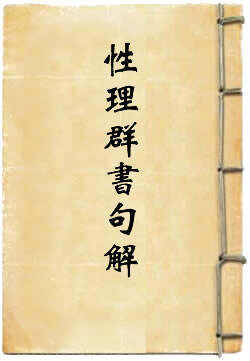 性理群書句解